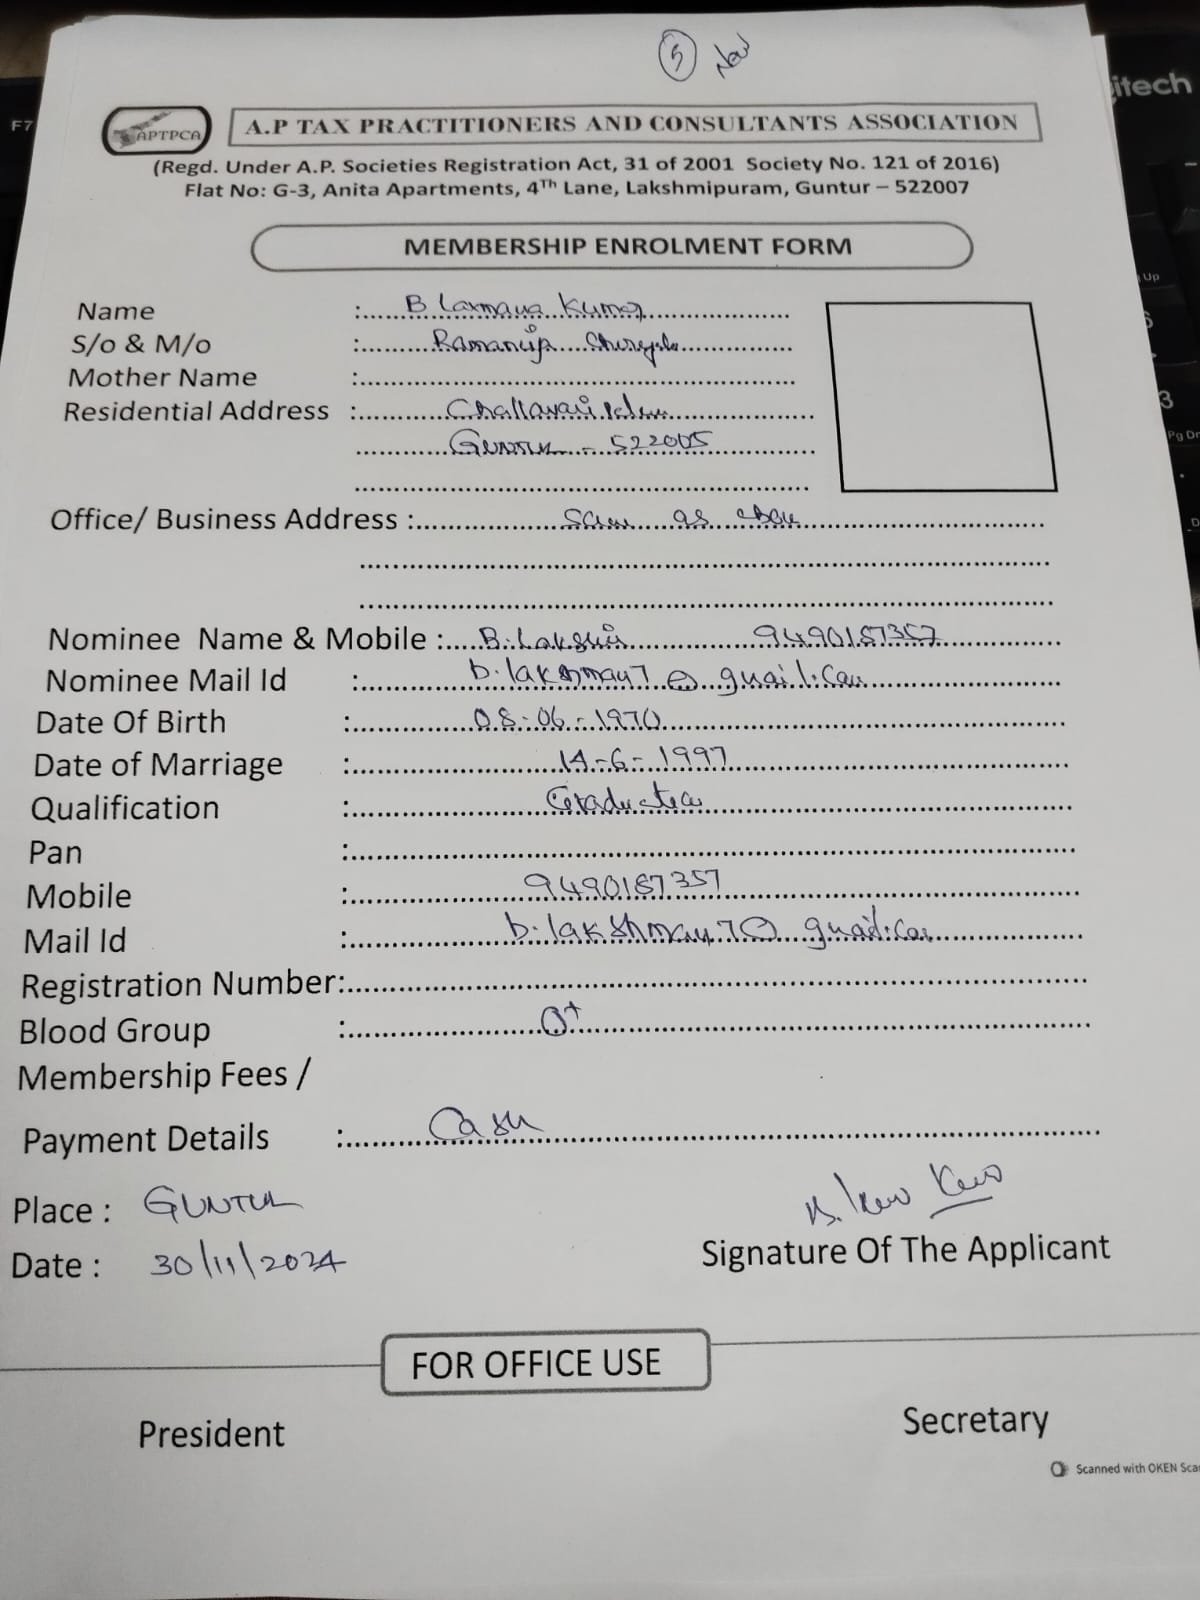 5 New
APTPCA
A.P TAX PRACTITIONERS AND CONSULTANTS ASSOCIATION
(Regd. Under A.P. Societies Registration Act, 31 of 2001 Society No. 121 of 2016)
Flat No: G-3, Anita Apartments, 4Th Lane, Lakshmipuram, Guntur – 522007
MEMBERSHIP ENROLMENT FORM
Name : B Laxmana Kumar
S/o & M/o : Ramanuja
Mother Name :
Residential Address :
Guntur - 522005
Office/ Business Address : Same as above
Nominee Name & Mobile : B. Lakshmi 9490187357
Nominee Mail Id : b.lakshman7@gmail.com
Date Of Birth : 08-06-1970
Date of Marriage : 14-6-1997
Qualification : Graduation
Pan :
Mobile : 9490187357
Mail Id : b.lakshman7@gmail.com
Registration Number:
Blood Group : O+
Membership Fees /
Payment Details : Cash
Place : GUNTUR
Date : 30/11/2024
Signature Of The Applicant
FOR OFFICE USE
President Secretary
Scanned with OKEN Sca
F7
itech
Up
3
Pg Dn